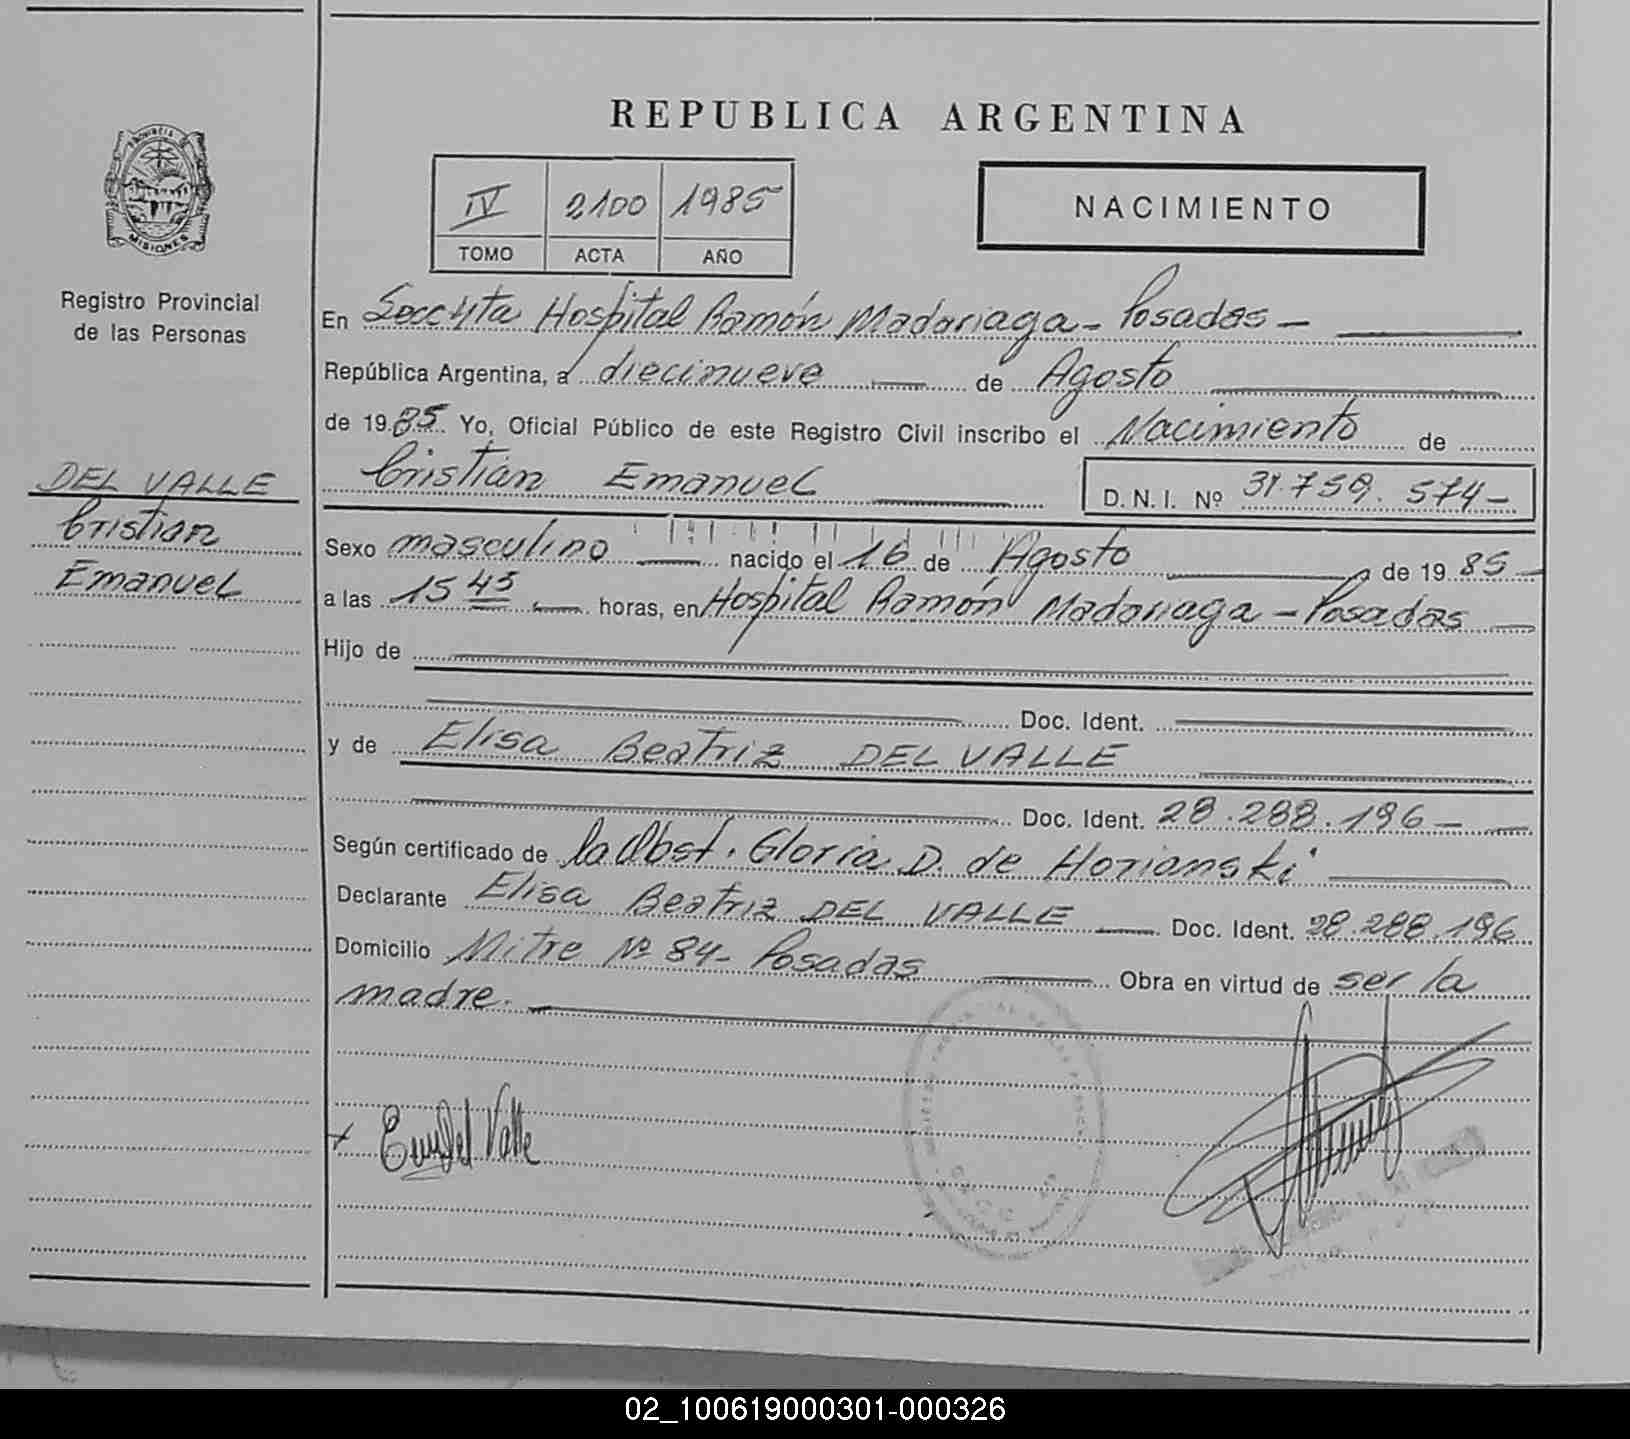 REPUBLICA ARGENTINA
PROVINCIA DE
MISIONES
Registro Provincial
de las Personas
IV 2100 1985
TOMO ACTA AÑO
NACIMIENTO
En Secc 4ta Hospital Ramón Madariaga - Posadas -
República Argentina, a diecinueve de Agosto
de 1985 Yo, Oficial Público de este Registro Civil inscribo el Nacimiento de
Cristian Emanuel D.N.I. Nº 31.759.574-
DEL VALLE
Cristian
Emanuel
Sexo masculino nacido el 16 de Agosto de 19 85-
a las 15 45 horas, en Hospital Ramón Madariaga - Posadas
Hijo de
Doc. Ident.
y de Elisa Beatriz DEL VALLE
Doc. Ident. 28.288.196-
Según certificado de la Obst. Gloria D. de Horianski
Declarante Elisa Beatriz DEL VALLE Doc. Ident. 28.288.196
Domicilio Mitre Nº 84- Posadas Obra en virtud de ser la
madre.
Del Valle
02_100619000301-000326